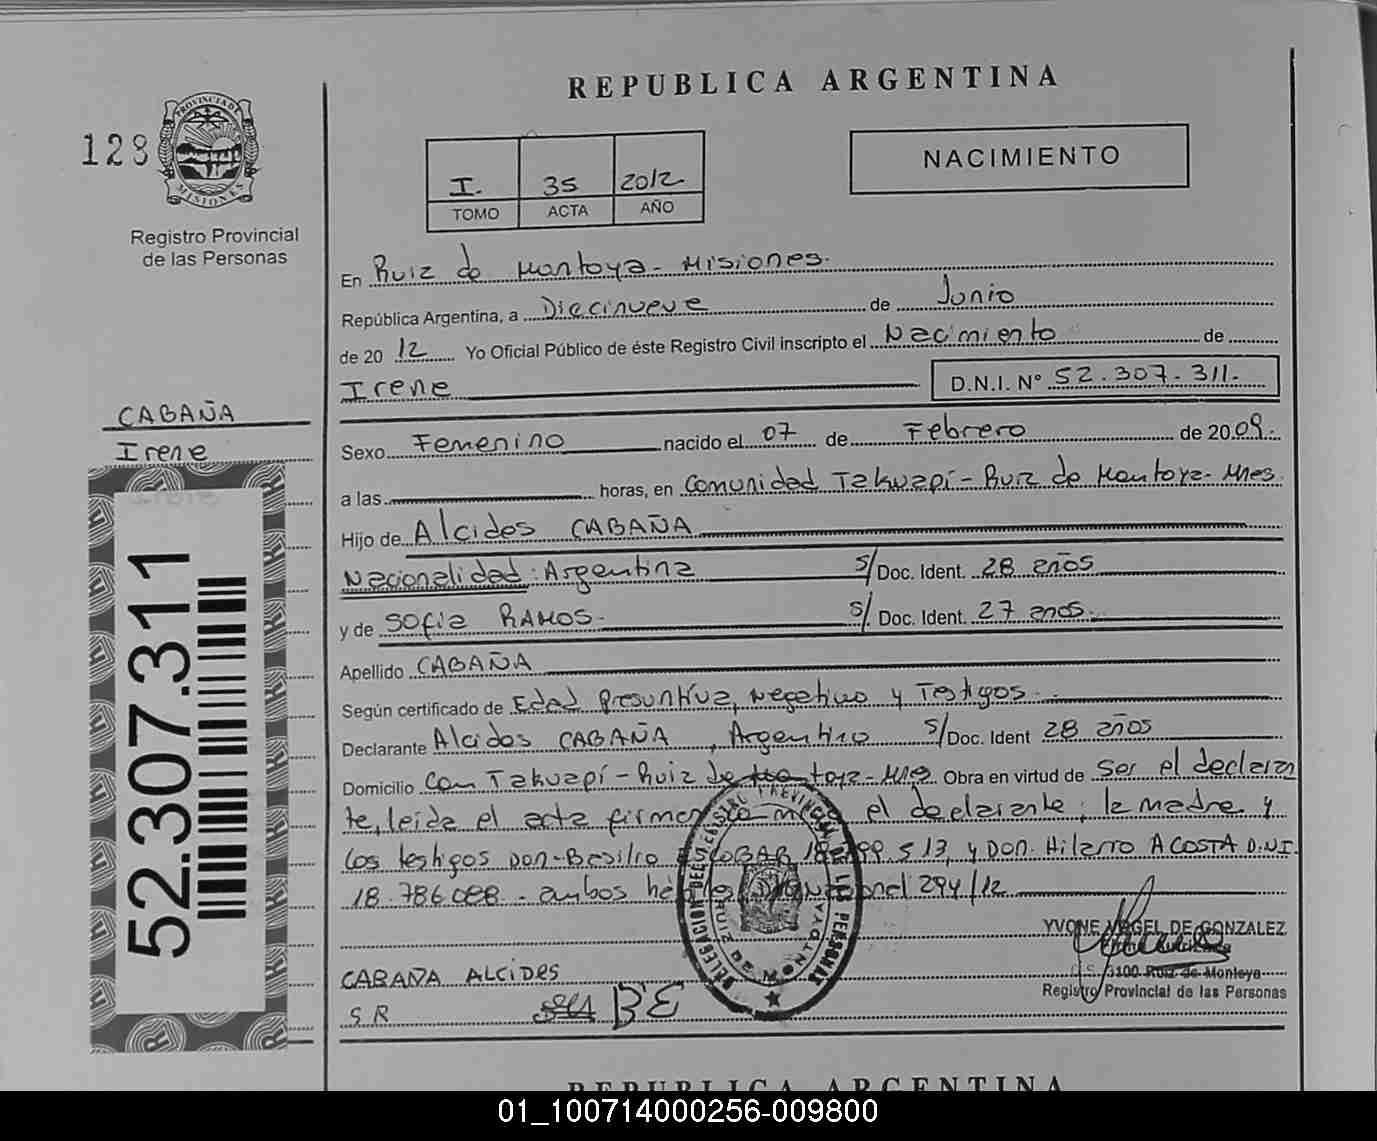 REPUBLICA ARGENTINA
128
PROVINCIA DE
MISIONES
Registro Provincial
de las Personas
I. 35 2012
TOMO ACTA AÑO
NACIMIENTO
En Ruiz de Montoya - Misiones.
República Argentina, a Diecinueve de Junio
de 20 12 Yo Oficial Público de éste Registro Civil inscripto el Nacimiento de
Irene D.N.I. Nº 52.307.311.
CABAÑA
Irene
Sexo Femenino nacido el 07 de Febrero de 2009.
a las horas, en Comunidad Takuapí - Ruiz de Montoya - Mnes.
Hijo de Alcides CABAÑA
Nacionalidad: Argentina S/ Doc. Ident. 28 años
y de Sofia RAMOS. S/. Doc. Ident. 27 anos.
Apellido CABAÑA
Según certificado de Edad Presuntiva, Negativo y Testigos.
Declarante Alcides CABAÑA, Argentino S/ Doc. Ident 28 años
Domicilio Com Takuapí - Ruiz de Montoya - Mnes Obra en virtud de Ser el declaran
te, leída el acta firman el declarante, la madre y
los testigos Don. Basilio 513, y DON. Hilario ACOSTA D.N.I.
18.786.088 - ambos 294/12
YVONE DE GONZALEZ
3100 Ruiz de Montoya
Registro Provincial de las Personas
CABAÑA ALCIDES
S R B'E
DELEGACION DEL REGISTRO PROVINCIAL DE LAS PERSONAS
RUIZ DE MONTOYA
52.307.311
REPUBLICA ARGENTINA
01_100714000256-009800